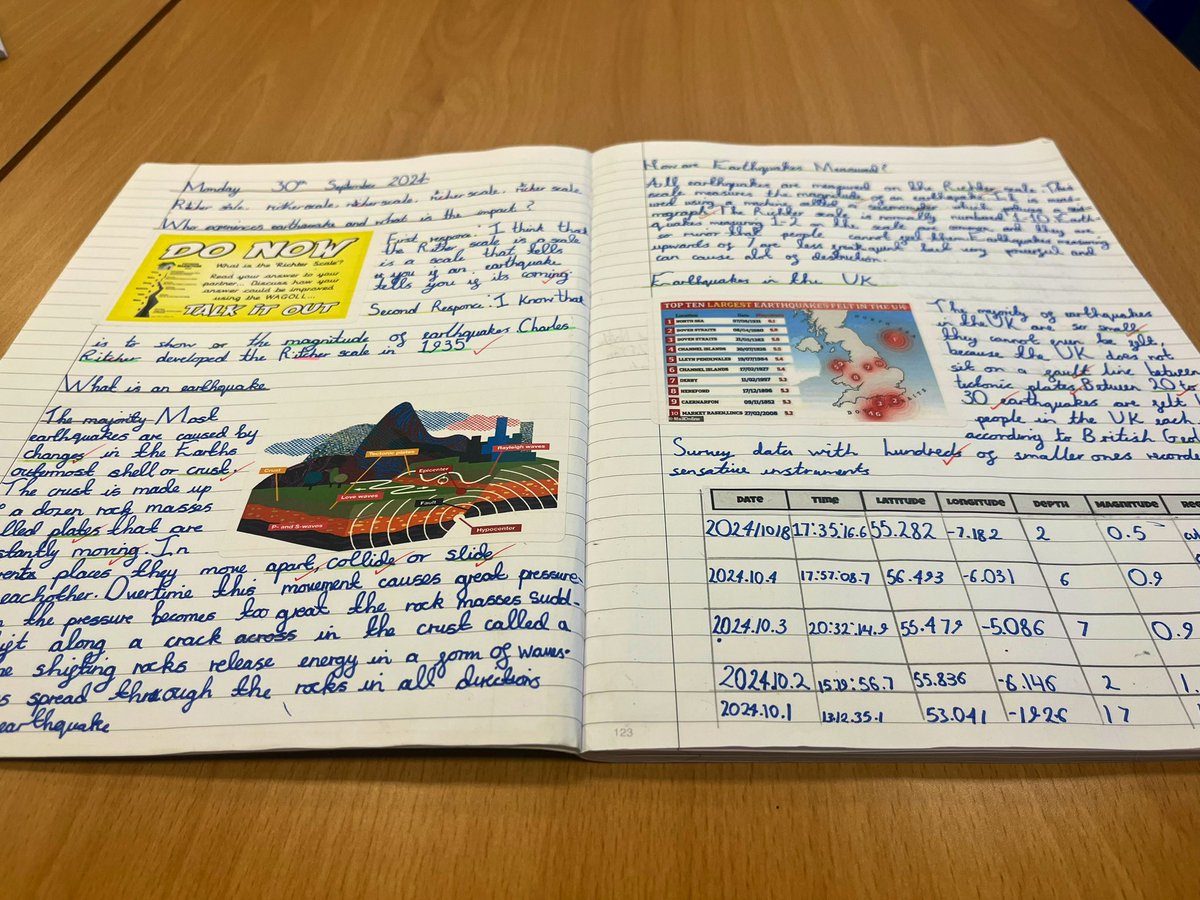 Monday 30th September 2024
Ritcher scale. ritcher scale. ritcher scale. ritcher scale. ritcher scale
Who experiences earthquake and what is the impact?
DO NOW
What is the Richter Scale?
Read your answer to your
partner... Discuss how your
answer could be improved
using the WAGOLL...
TALK IT OUT
First respone: I think that
the Ritcher scale is a scale
is a scale that tells
u you if an earthquake
tells you if its coming
Second Responce: I know that
is to show or the magnitude of earthquakes Charles
Ritcher developed the Ritcher scale in 1935
What is an earthquake
The majority Most
earthquakes are caused by
changes in the Earths
outermost shell or crust.
The crust is made up
a dozen rock masses
lled plates that are
stantly moving. In
places they move apart, collide or slide
eachother. Overtime this movement causes great pressure.
the pressure becomes too great the rock masses sudd-
along a crack across in the crust called a
shifting rocks release energy in a form of waves.
s spread through the rocks in all directions
earthquake
Crust
Tectonic plates
Rayleigh waves
Epicenter
Love waves
Fault
P- and S-waves
Hypocenter
How are Earthquakes Measured?
All earthquakes are measured on the Richter scale. This
scale measures the magnitude of an earthquake. It is meas-
ured using a machine called a
mograph. The Richter scale is normally numbered 1-10 Earth-
quakes measuring 1-2 on the scale are common and they are
so minor that people cannot feel them. Earthquakes measuring
upwards of 7 are less frequent but very powerful and
can cause alot of destruction.
Earthquakes in the UK
TOP TEN LARGEST EARTHQUAKES FELT IN THE UK
Location Date Magnitude
1 NORTH SEA 07/06/1931 6.1
2 DOVER STRAITS 06/04/1580 5.8
3 DOVER STRAITS 21/05/1382 5.8
4 CHANNEL ISLANDS 30/07/1926 5.5
5 LLYN PENINSULA 19/07/1984 5.4
6 CHANNEL ISLANDS 17/02/1927 5.4
7 DERBY 11/02/1957 5.3
8 HEREFORD 17/12/1896 5.3
9 CAERNARFON 09/11/1852 5.3
10 MARKET RASEN, LINCS 27/02/2008 5.2
The majority of earthquakes
in the UK are so small
they cannot even be felt,
because the UK does not
sit on a fault line between
tectonic plates. Between 20 to
30 earthquakes are felt
people in the UK each
according to British Geol
Survey data with hundreds of smaller ones recorde
sensative instruments
DATE TIME LATITUDE LONGITUDE DEPTH MAGNITUDE
2024/10/8 17:35:16.6 55.282 -7.182 2 0.5
2024.10.4 17:57:08.7 56.493 -6.031 6 0.9
2024.10.3 20:32:14.9 55.479 -5.086 7 0.9
2024.10.2 15:19:56.7 55.836 -6.146 2 1.
2024.10.1 13:12:35.1 53.041 -1926 17
123